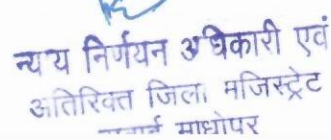 न्याय निर्णयन अधिकारी एवं
अतिरिक्त जिला मजिस्ट्रेट
सवाई माधोपर